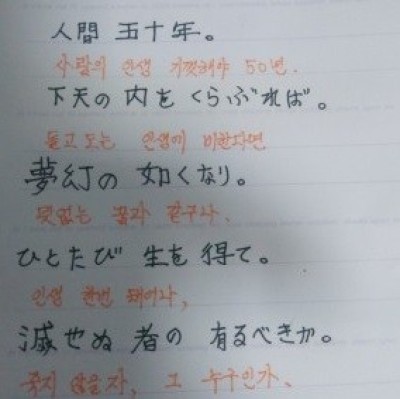 人間 五十年。
사람의 인생 기껏해야 50년.
下天の 内を くらぶれば。
돌고 도는 인생에 비한다면
夢幻の 如くなり。
덧없는 꿈과 같구나.
ひとたび 生を 得て。
인생 한번 태어나,
滅せぬ 者の 有るべきか。
죽지 않을 자, 그 누구인가.